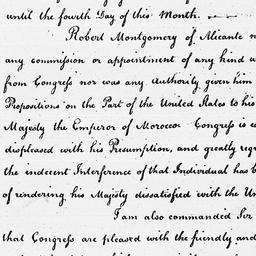 until the fourth Day of this Month. —
Robert Montgomery of Alicante
any commission or appointment of any kind
from Congress nor was any Authority given him
Propositions on the Part of the United States to his
Majesty the Emperor of Morocco Congress is
displeased with his Presumption, and greatly
the indecent Interference of that Individual has
of rendering his Majesty dissatisfied with the
I am also commanded Sir
that Congress are pleased with the friendly and